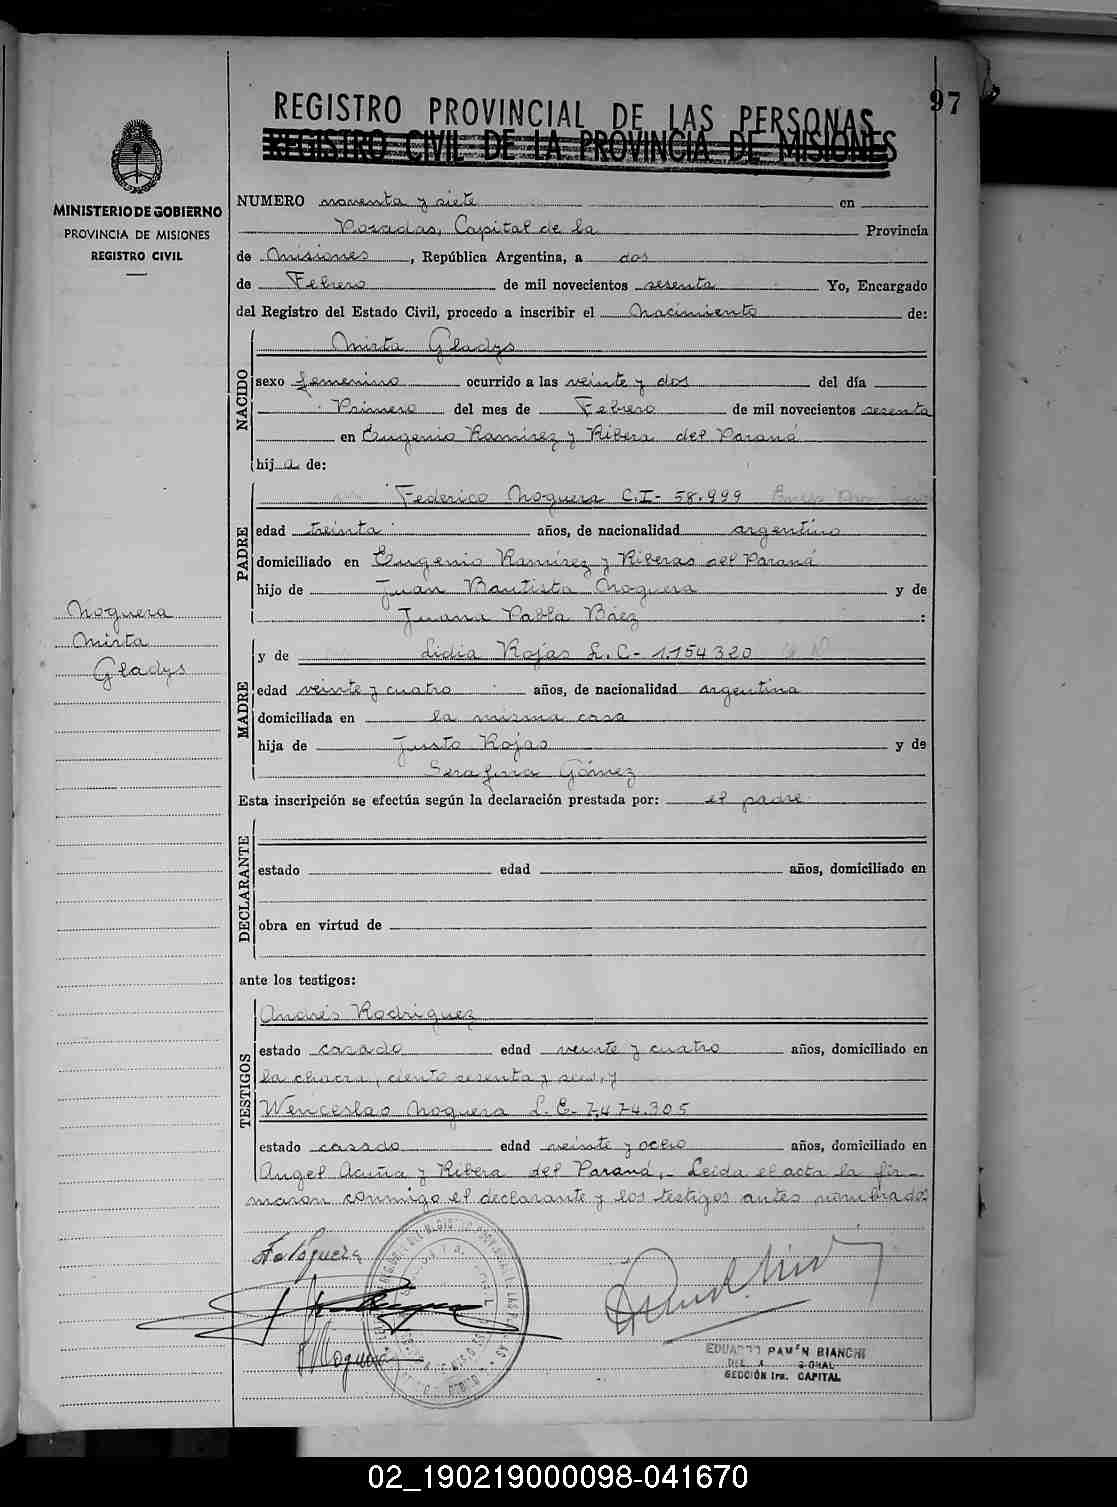 97
REGISTRO PROVINCIAL DE LAS PERSONAS
REGISTRO CIVIL DE LA PROVINCIA DE MISIONES
MINISTERIO DE GOBIERNO
PROVINCIA DE MISIONES
REGISTRO CIVIL
NUMERO noventa y siete en
Posadas, Capital de la Provincia
de Misiones, República Argentina, a dos
de Febrero de mil novecientos sesenta Yo, Encargado
del Registro del Estado Civil, procedo a inscribir el Nacimiento de:
NACIDO
Mirta Gladys
sexo femenino ocurrido a las veinte y dos del día
Primero del mes de Febrero de mil novecientos sesenta
en Eugenio Ramirez y Ribera del Paraná
hija de:
PADRE
Federico Noguera C.I- 58.999
edad treinta años, de nacionalidad argentino
domiciliado en Eugenio Ramirez y Riberas del Paraná
hijo de Juan Bautista Noguera y de
Juana Pabla Báez :
Noguera
Mirta
Gladys
MADRE
y de Lidia Rojas L.C- 1.154320
edad veinte y cuatro años, de nacionalidad argentina
domiciliada en la misma casa
hija de Justo Rojas y de
Serafina Gómez
Esta inscripción se efectúa según la declaración prestada por: el padre
DECLARANTE
estado edad años, domiciliado en
obra en virtud de
ante los testigos:
TESTIGOS
Andrés Rodriguez
estado casado edad veinte y cuatro años, domiciliado en
la chacra, ciento sesenta y seis, y
Wenceslao Noguera L.E. 7.474.305
estado casado edad veinte y ocho años, domiciliado en
Angel Acuña y Ribera del Paraná,- Leída el acta la fir-
maron conmigo el declarante y los testigos antes nombrados
F. Noguera
Noguera
EDUARDO RAMON BIANCHI
SECCIÓN 1ra. CAPITAL
02_190219000098-041670